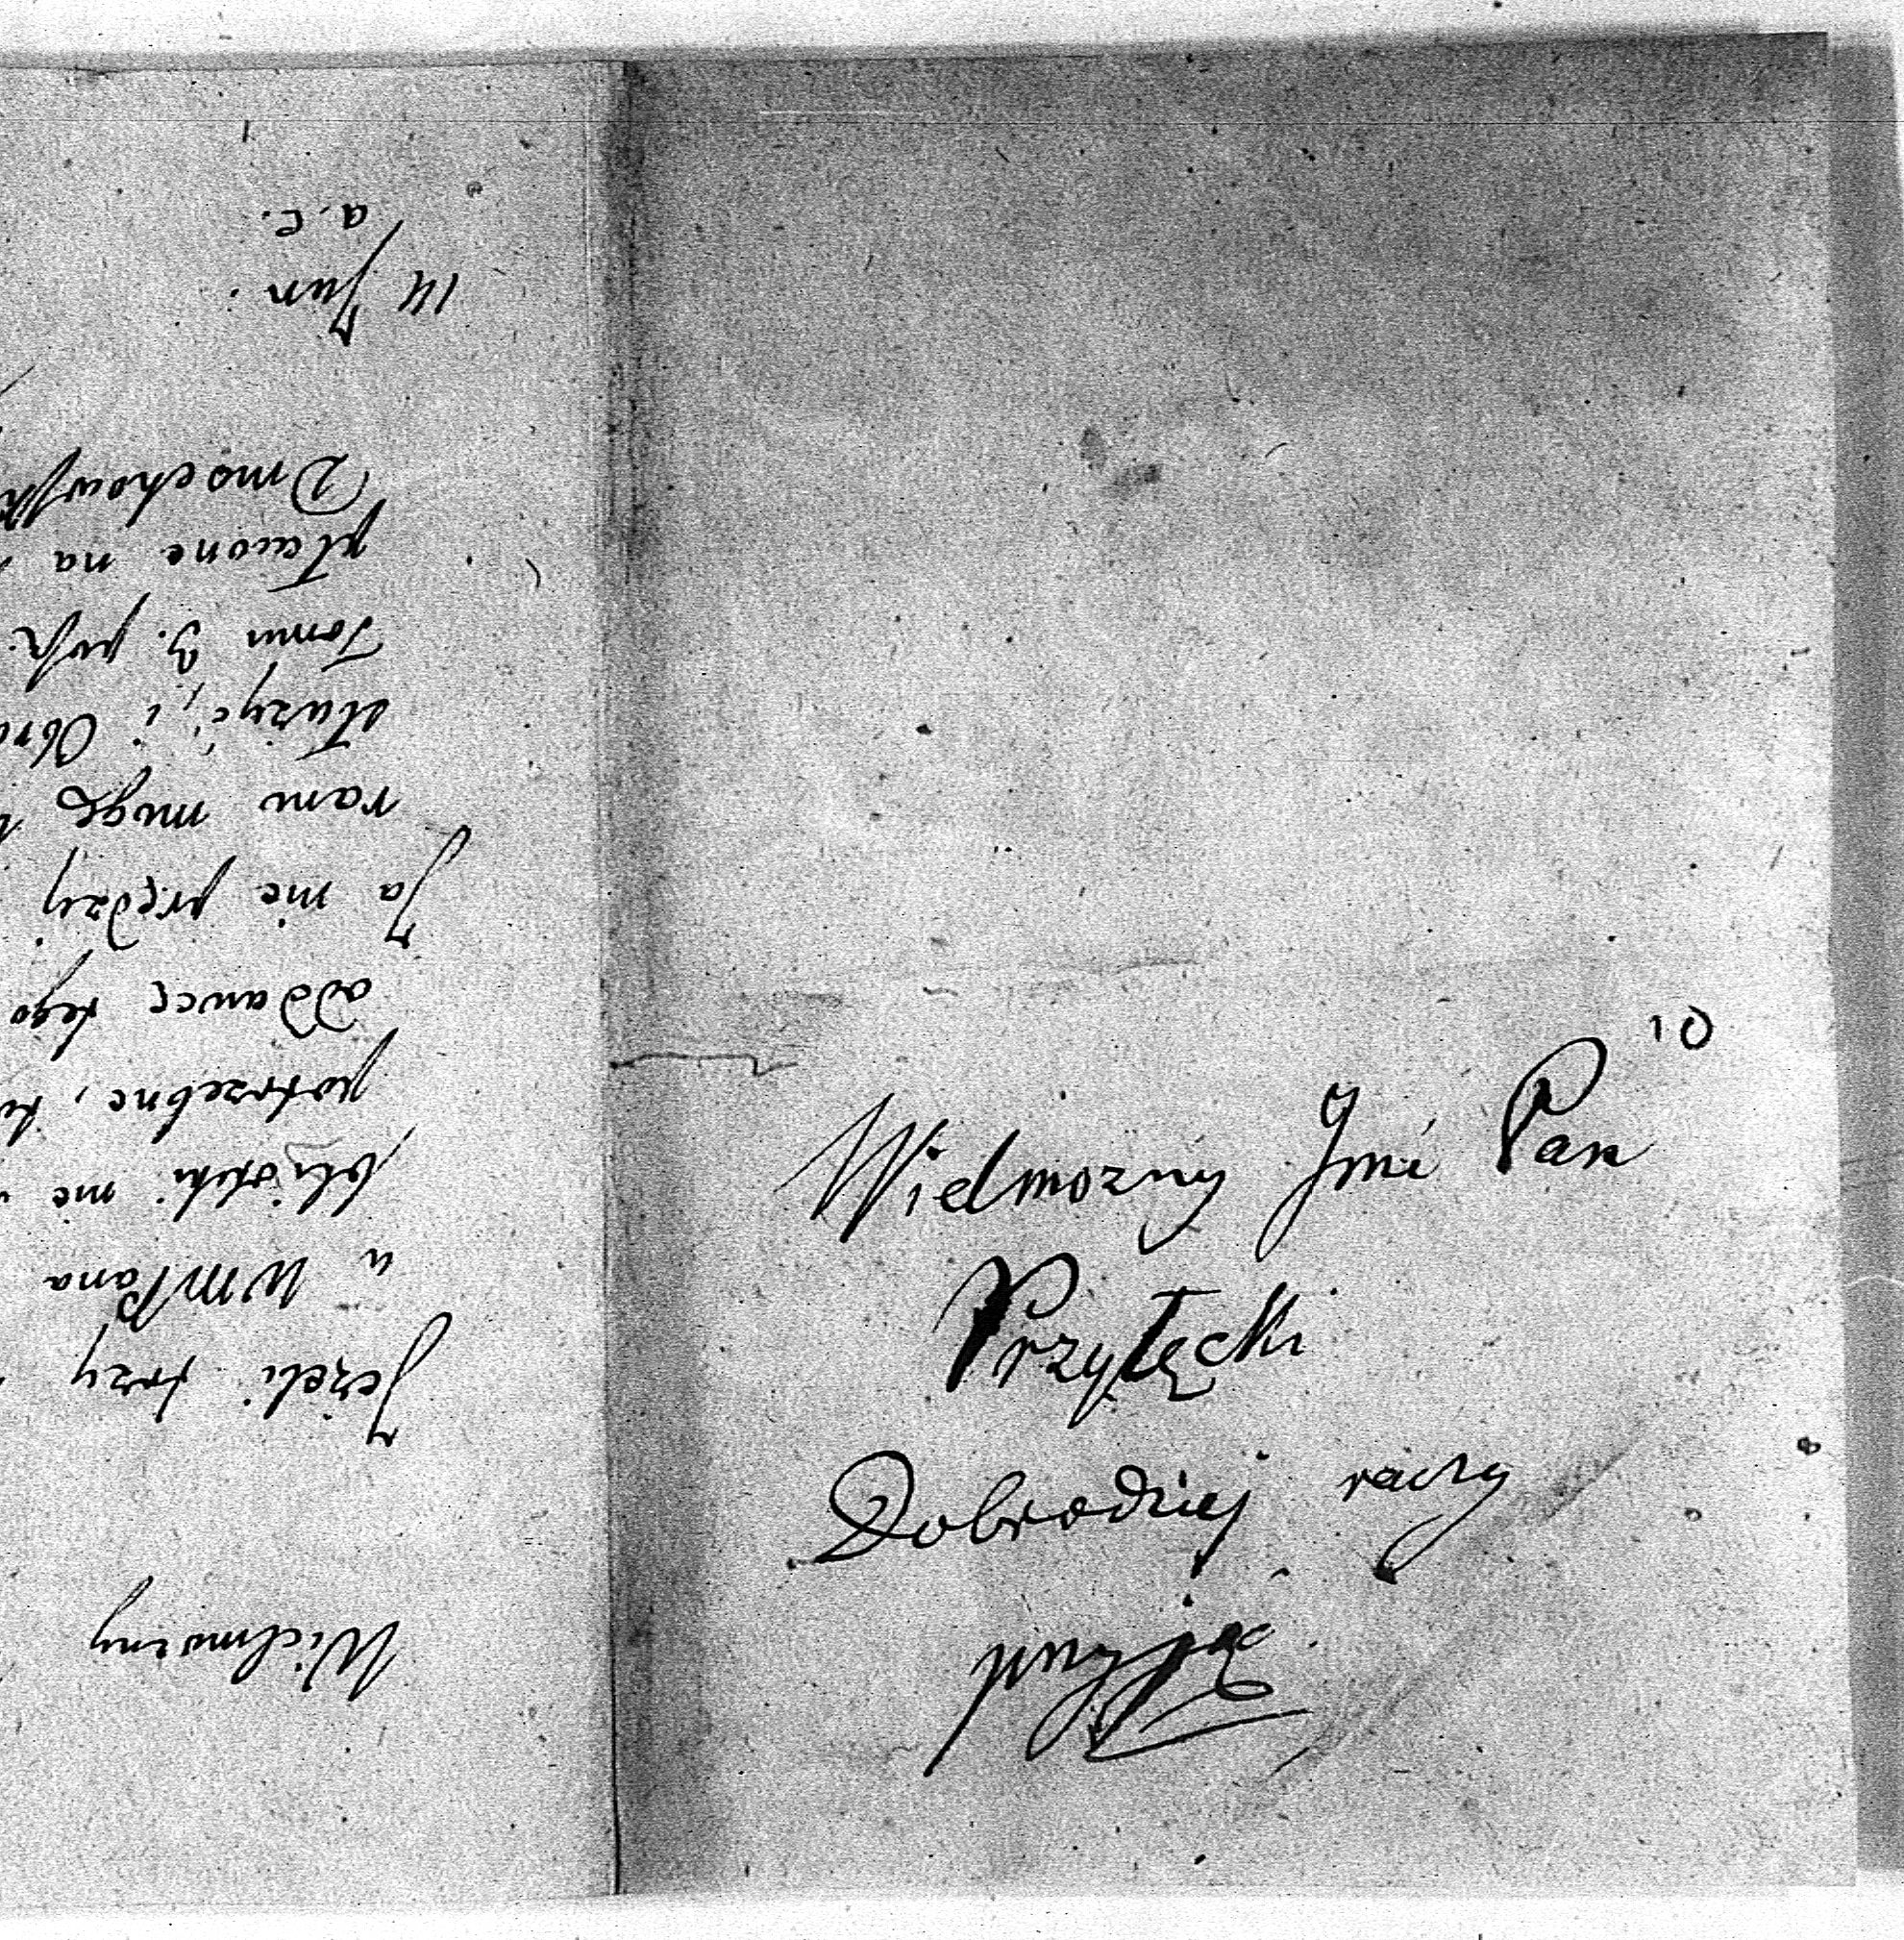 10
Wielmozny Jmć Pan
Przyłęcki
Dobrodziej raczy
przyjąć
Wielmożny
Jeżeli trzy
u WMPana
potrzebne,
oddawcę tego
Ja nie prędzej
rano mogę
służyć, i
Tomu 3.
płacone na
14 Jun.
a. c.